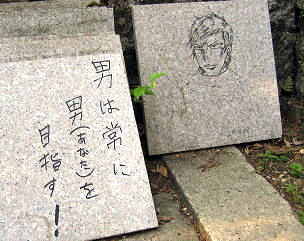 男は常に
男(あなた)を
目指す!